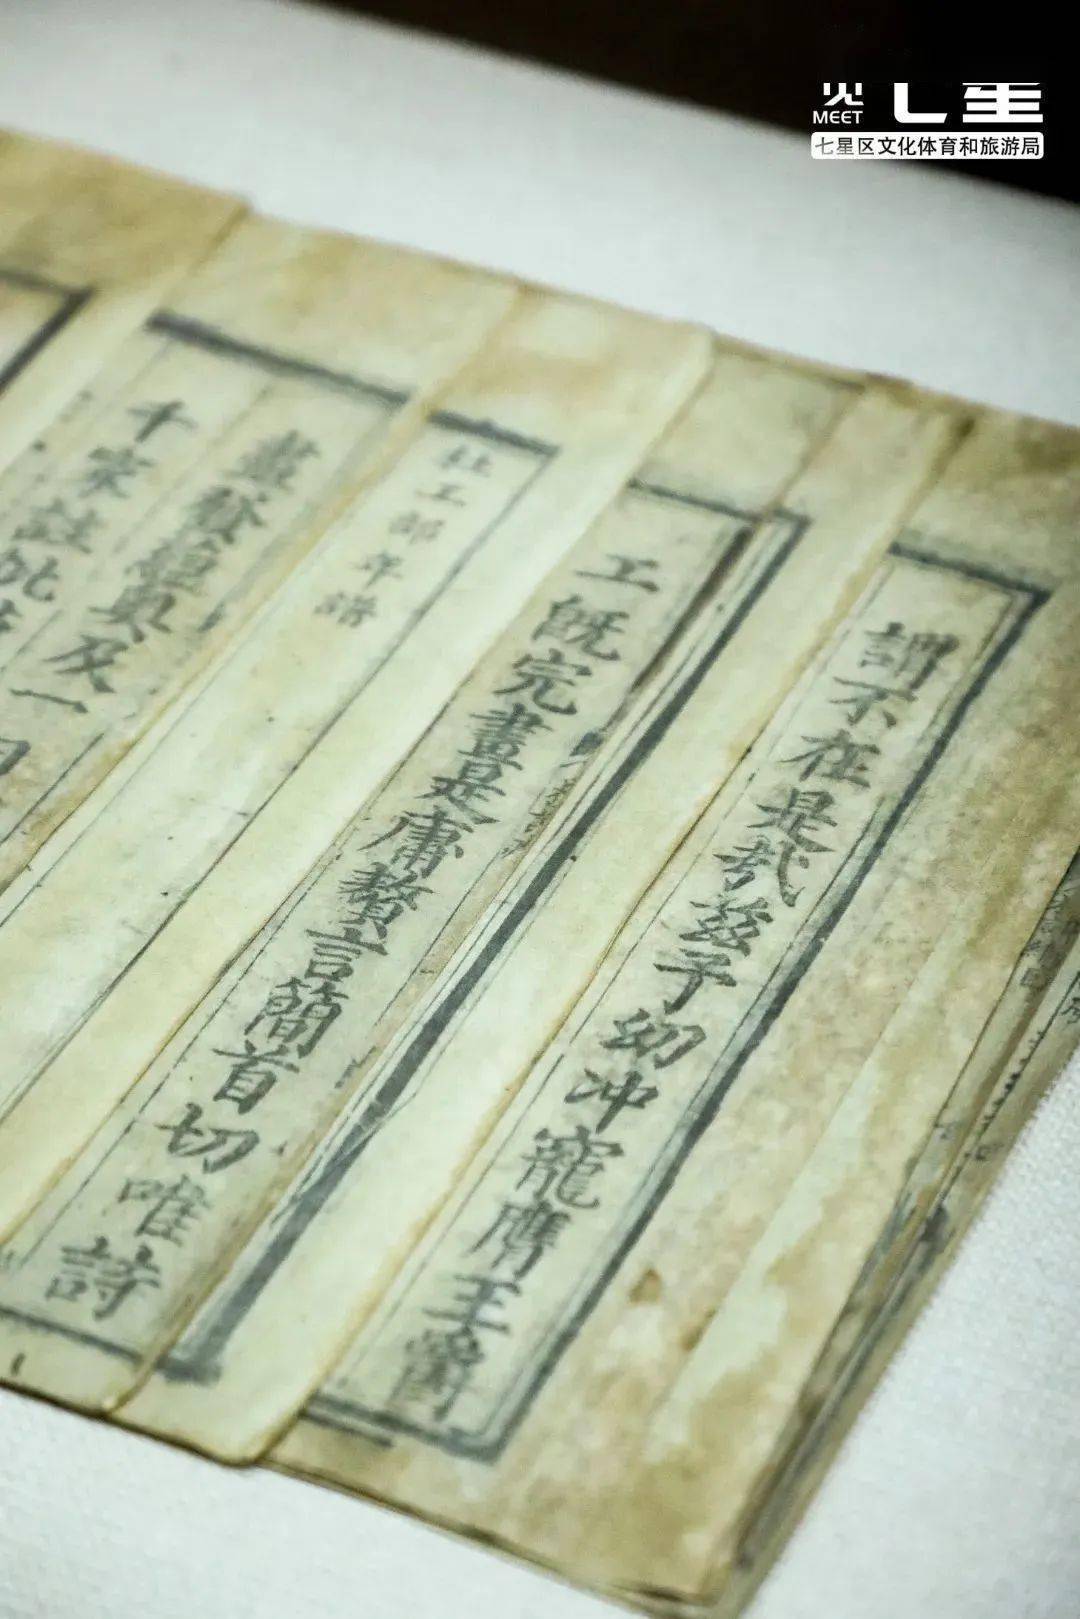 见七星
MEET
七星区文化体育和旅游局
謂不在是哉茲予幼冲寵膺王爵
工既完晝是庸贅言簡首切唯詩
杜工部年譜
盡發蘊奥及一
千家註批